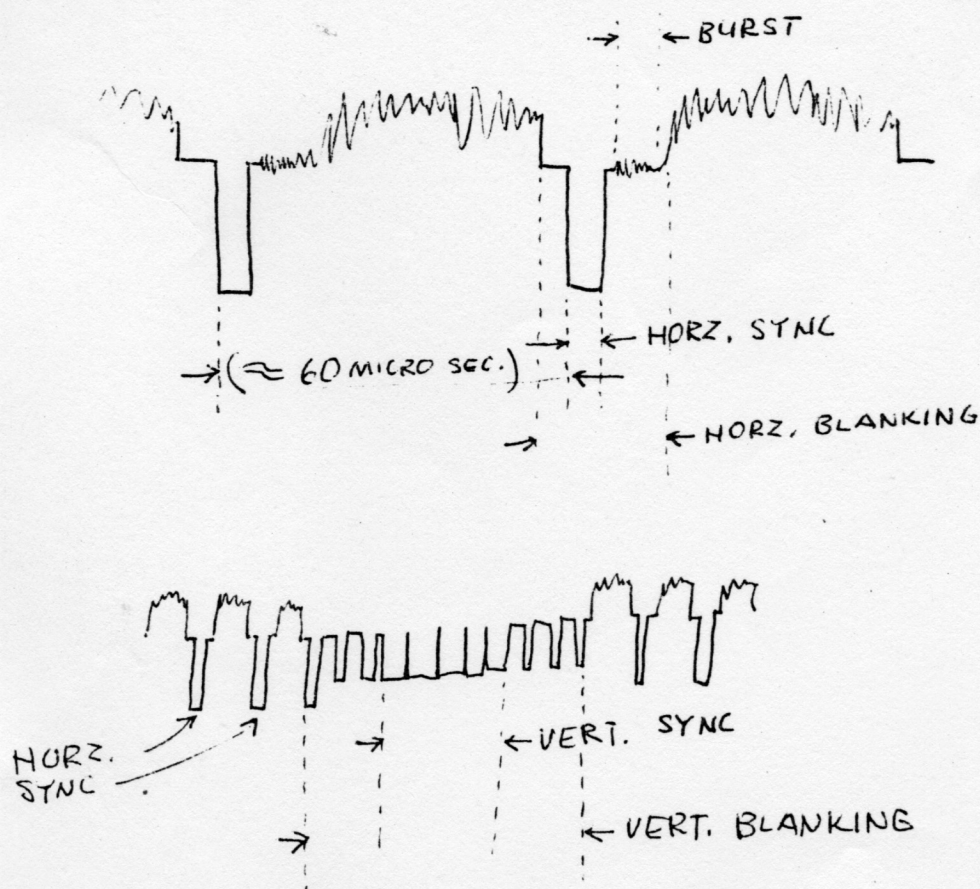 BURST
HORZ. SYNC
(≈ 60 MICRO SEC.)
HORZ. BLANKING
HORZ.
SYNC
VERT. SYNC
VERT. BLANKING